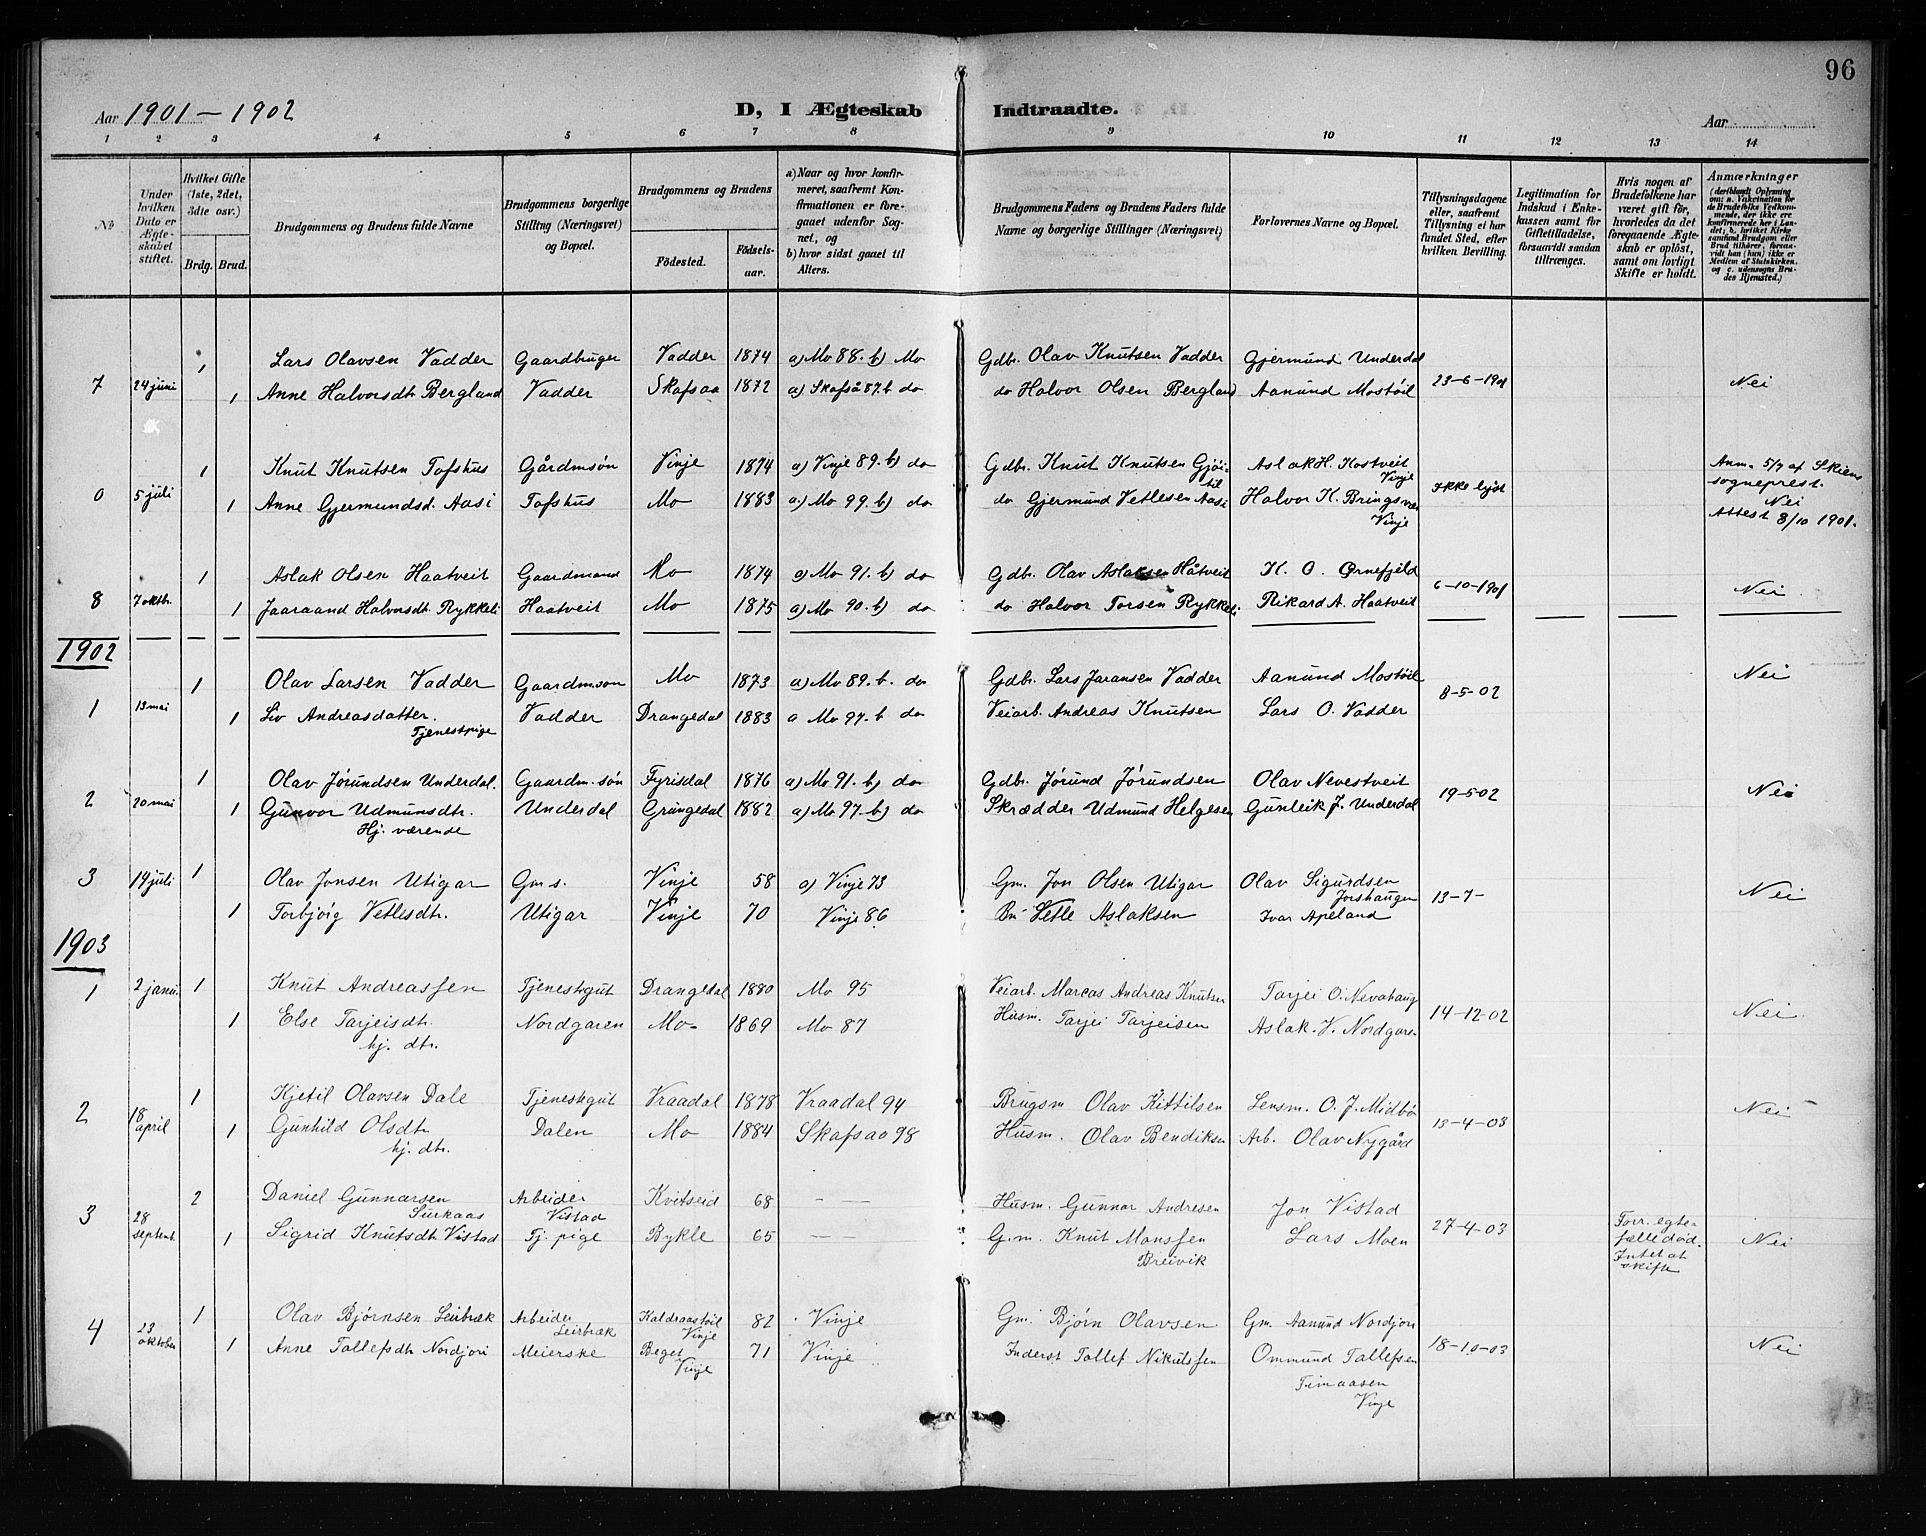 96
Aar 1901 - 1902
D, I Ægteskab Indtraadte.
Aar
1 2 3 4 5 6 7 8 9 10 11 12 13 14
No
Under hvilken Dato er Ægteskabet stiftet.
Hvilket Gifte (1ste, 2det, 3die osv.)
Brdg. Brud.
Brudgommens og Brudens fulde Navne
Brudgommens borgerlige Stilling (Næringsvei) og Bopæl.
Brudgommens og Brudens
Fødested.
Fødselsaar.
a) Naar og hvor konfirmeret, saafremt Konfirmationen er foregaaet udenfor Sognet, og
b) hvor sidst gaaet til Alters.
Brudgommens Faders og Brudens Faders fulde Navne og borgerlige Stillinger (Næringsvei)
Forlovernes Navne og Bopæl.
Tillysningsdagene eller, saafremt Tillysning ei har fundet Sted, efter hvilken Bevilling.
Legitimation for Indskud i Enkekassen samt for Giftetilladelse, forsaavidt saadan tiltrænges.
Hvis nogen af Brudefolkene har været gift før, hvorledes da det foregaaende Ægteskab er opløst, samt om lovligt Skifte er holdt.
Anmærkninger
7 24 juni 1 Lars Olavsen Vadder Gaardbruger Vadder 1874 a) Mo 88. b) Mo Gdb. Olav Knutsen Vadder Gjermund Underdal 23-6-1901 Nei
1 Anne Halvorsdt Bergland Vadder Skafsaa 1872 a) Skafså 87. b do do Halvor Olsen Bergland Aanund Mostøil
0 5 juli 1 Knut Knutsen Tofshus Gårdmsøn Vinje 1874 a) Vinje 89. b) do Gdb. Knut Knutsen Gjøitil Aslak H. Kostveit Vinje Ikke lyst Anm. 5/7 af Skiens sogneprest. Nei Attest 8/10 1901.
1 Anne Gjermundsd. Aasi Tofshus Mo 1883 a) Mo 99. b) do do Gjermund Vetlesen Aasi Halvor K. Bringsvær Vinje
8 7 oktbr. 1 Aslak Olsen Haatveit Gaardmand Mo 1874 a) Mo 91. b) do Gdb. Olav Aslaksen Håtveit K. O. Ørnefjeld 6-10-1901 Nei
1 Jaaraand Halvorsdt. Rykkeli Haatveit Mo 1875 a) Mo 90. b) do do Halvor Torsen Rykkeli Rikard A. Haatveit
1902
1 13 mai 1 Olav Larsen Vadder Gaardmsøn Mo 1873 a) Mo 89. b. do Gdb. Lars Jaransen Vadder Aanund Mostøil 8-5-02 Nei
1 Liv Andreasdatter. Tjenestpige Vadder Drangedal 1883 a Mo 97. b do Veiarb. Andreas Knutsen Lars O. Vadder
2 20 mai 1 Olav Jørundsen Underdal. Gaardm. søn Fyrisdal 1876 a) Mo 91. b) do Gdb. Jørund Jørundsen Olav Nevestveit 19-5-02 Nei
1 Gunvor Udmunsdtr. Hj. værende Underdal Grungedal 1882 a) Mo 97. b) do Skrædder Udmund Helgesen Gunleik J. Underdal
3 14 juli 1 Olav Jonsen Utigar Gm s. Vinje 58 a) Vinje 73 Gm. Jon Olsen Utigar Olav Sigurdsen Jorshaugen 13-7- Nei
1 Torbjørg Vetlesdtr. Utigar Vinje 70 Vinje 86 Vetle Aslaksen Ivar Apeland
1903
1 2 janu. 1 Knut Andreassen Tjenestgut Drangedal 1880 Mo 95 Veiarb. Marcas Andreas Knutsen Tarjei O. Nevahaug 14-12-02 Nei
1 Else Tarjeisdtr. hj. dtr. Nordgaren Mo 1869 Mo 87 Husm. Tarjei Tarjeisen Aslak. V. Nordgare-
2 18 april 1 Kjetil Olavsen Dale Tjenestgut Vraadal 1878 Vraadal 94 Brugsm Olav Kittilsen Lensm. O. J. Midbø 13-4-03 Nei
1 Gunhild Olsdtr hj. dtr. Dalen Mo 1884 Skafsaa 98 Husm. Olav Bendiksn Arb. Olav Nygård
3 28 septemb. 2 Daniel Gunnarsen Surkaas Arbeider Vistad Kvitseid 68 - — Husm. Gunnar Andresen Jon Vistad 27-4-03 Forr. egtefælle død. Intet at skifte Nei
1 Sigrid Knutsdt. Vistad Tj. pige Bykle 65 — — G.m. Knut Monssen Breivik Lars Moen
4 23 oktober 1 Olav Bjørnsen Leirbræk Arbeider Leirbræk Vinje 82 Vinje Gm. Bjørn Olavsen Gm. Aanund Nordjori 18-10-03 Nei
1 Anne Tallefsdt. Nordjori Meierske Vinje 71 Vinje Inderst Tallef Nikulssen Ommund Tallefsen Timaasen Vinje